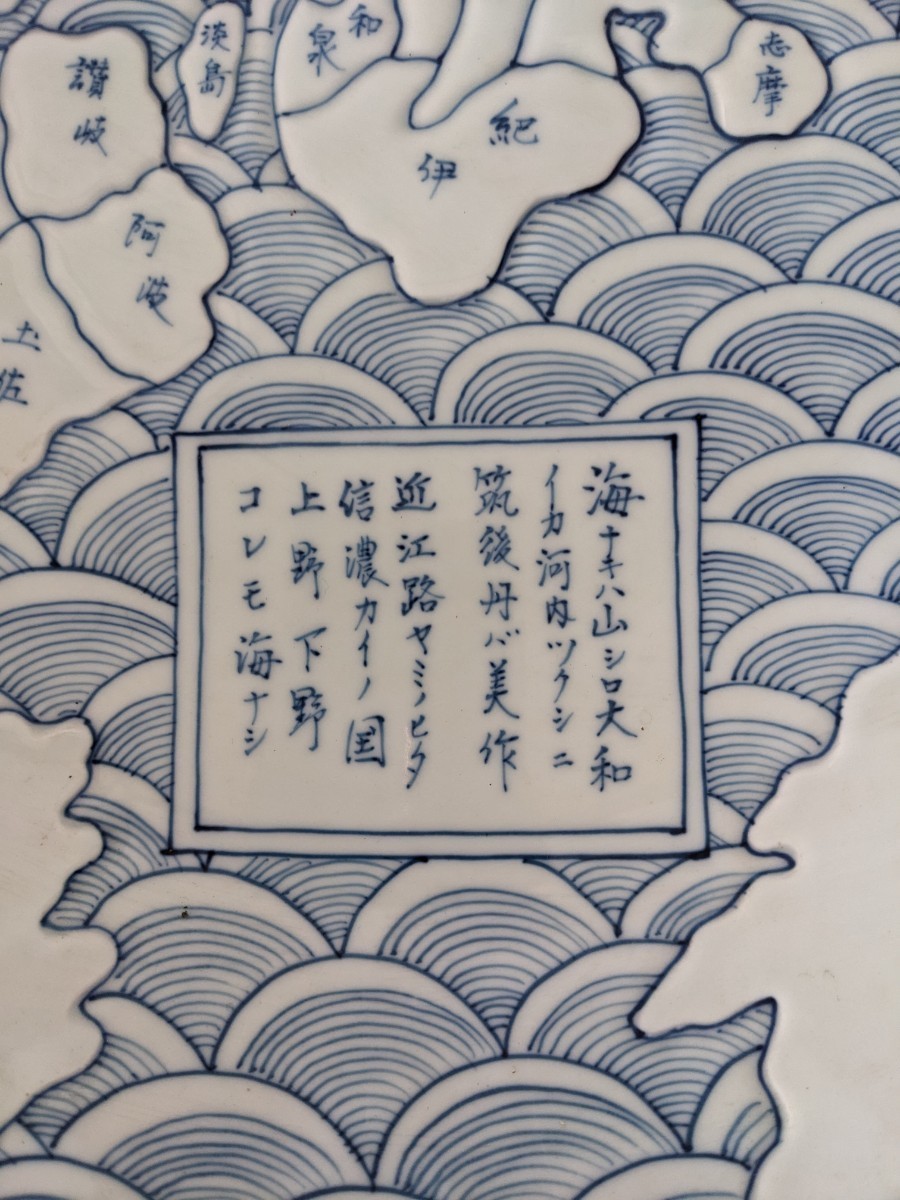 讃岐
淡島
和泉
紀伊
志摩
阿波
土佐
海ナキハ山シロ大和
イカ河内ツクシニ
筑後丹バ美作
近江路ヤミノヒタ
信濃カイノ国
上野下野
コレモ海ナシ